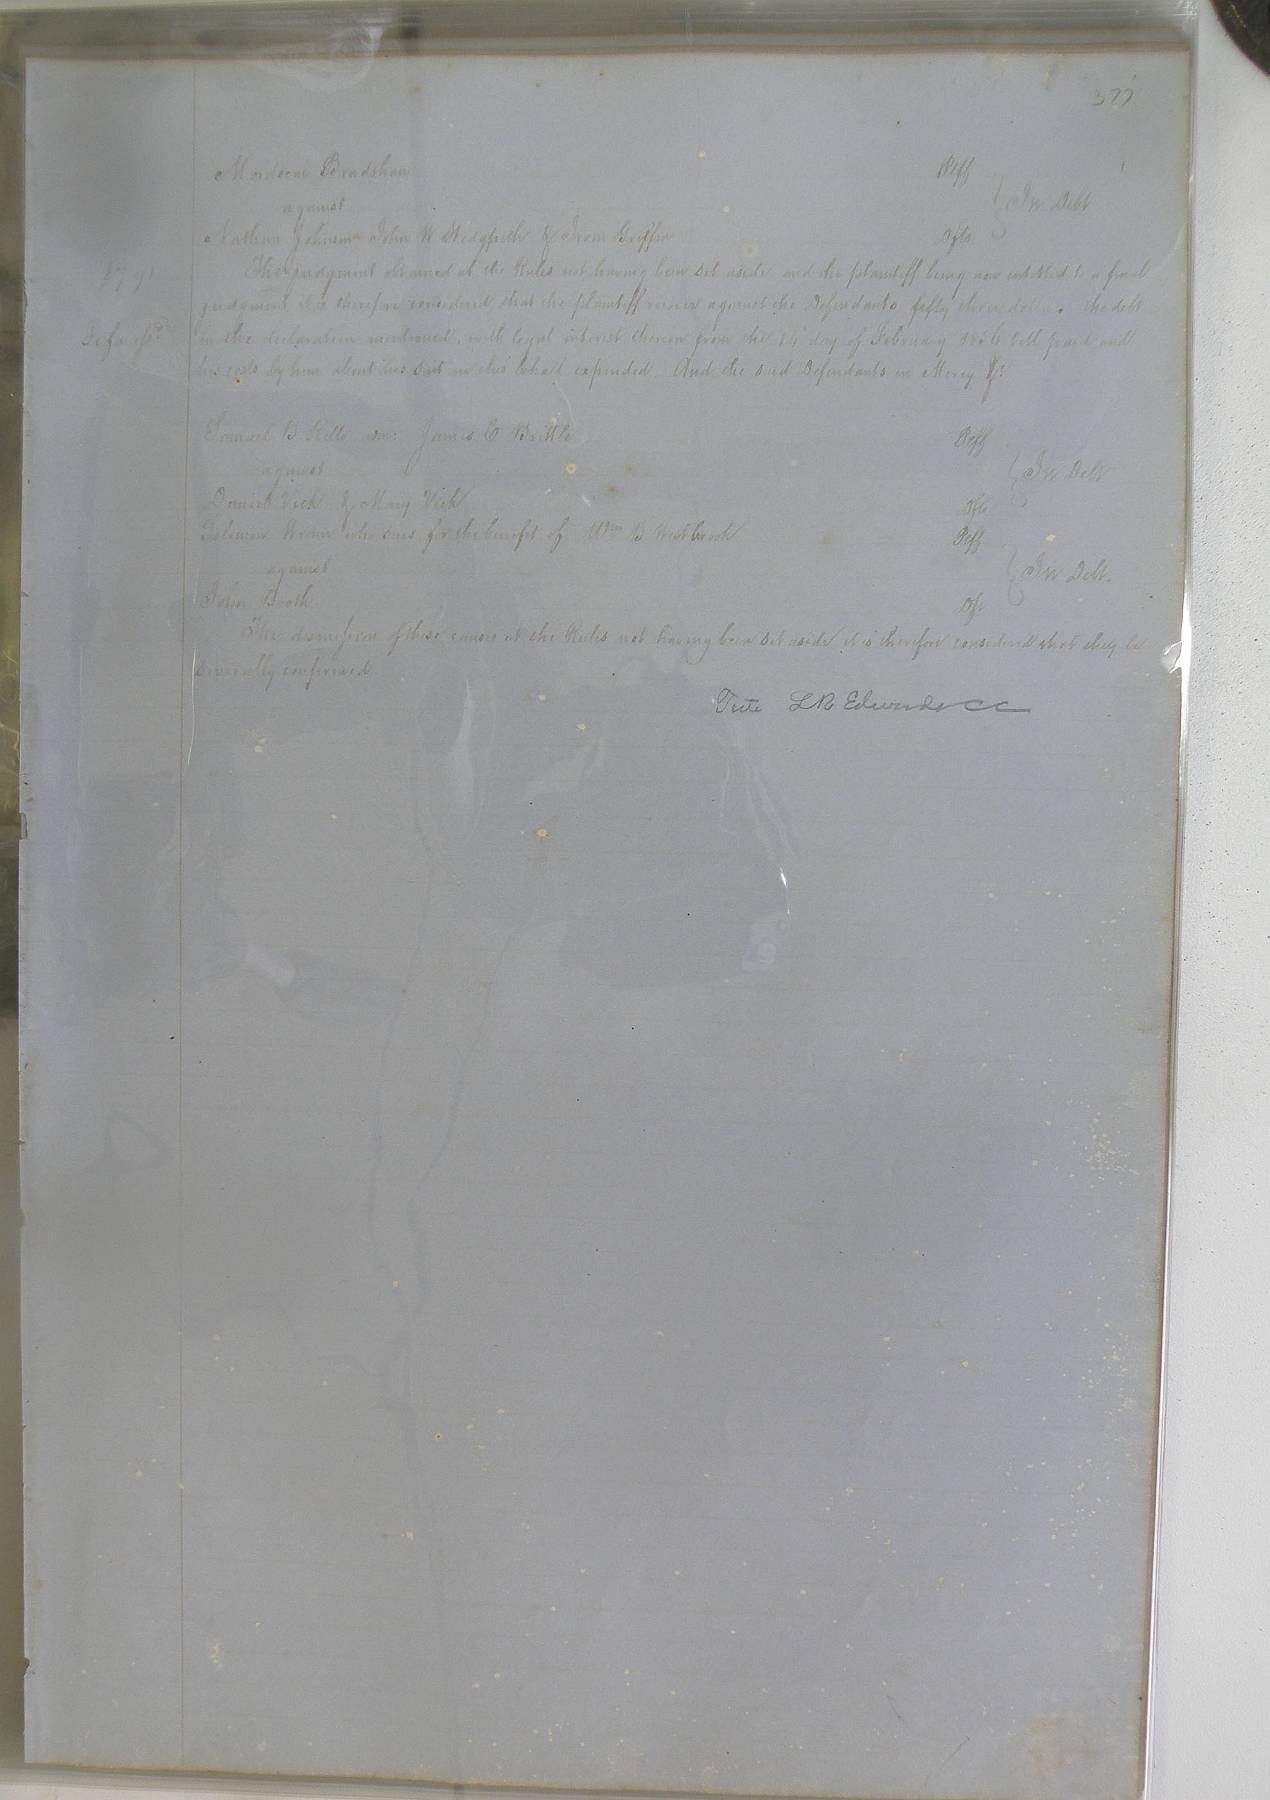 377
Mordecai Bradshaw Plff
against In Debt
Nathan Johnson John W Hedgpeth & Irvin Griffin Dfts
$7.91 The judgment obtained at the Rules not having been set aside and the plaintiff being now entitled to a final
judgment it is therefore considered that the plaintiff recover against the Defendants fifty three dollars. the debt
in the declaration mentioned, with legal interest thereon from the 14 day of February 1856 till paid and
his costs by him about his suit in this behalf expended. And the said Defendants in Mercy &c
Samuel B Kello James E Brittle Plff
against In Debt
Daniel Vick & Mary Vick Dfts
Solomon who sues for the benefit of Wm B Westbrook Plff
against In Debt.
John Booth Dft
The dismission of these causes at the Rules not having been set aside it is therefore considered that they be
severally confirmed.
Teste L R Edwards CC